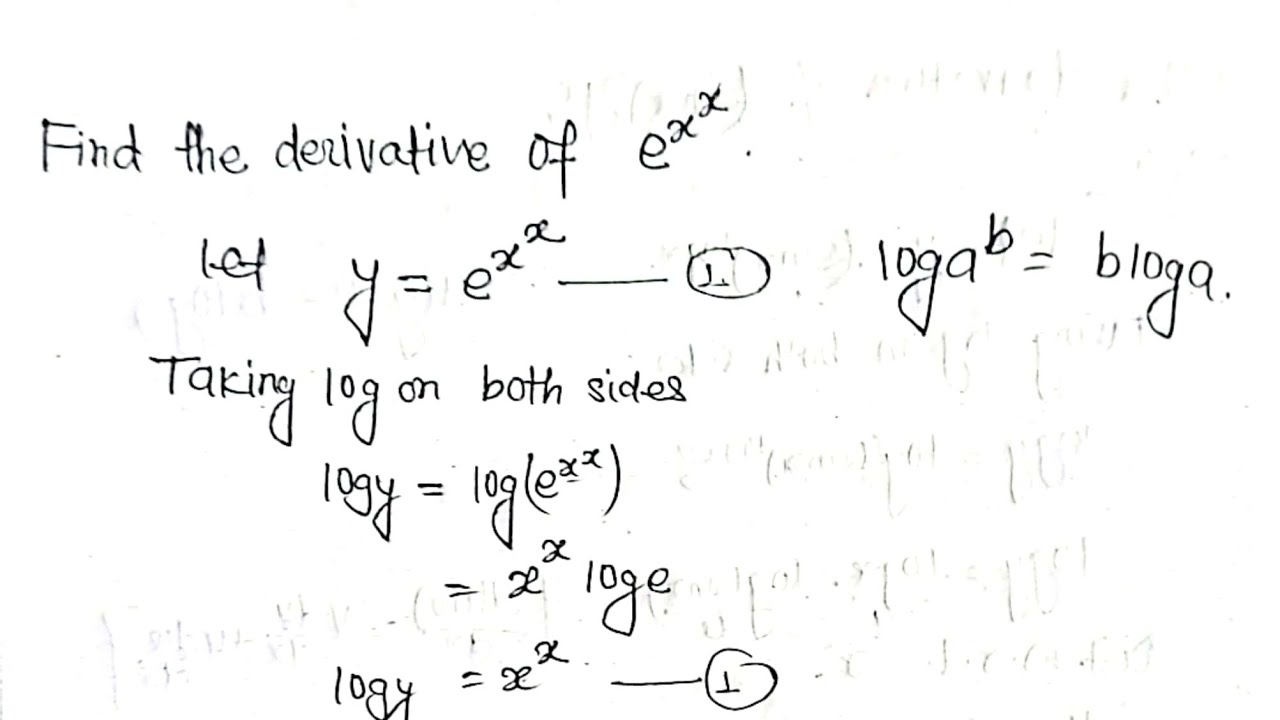 Find the derivative of e^x^x.
let y = e^x^x —— ① log a^b = b log a.
Taking log on both sides
log y = log(e^x^x)
= x^x log e
log y = x^x —— ①